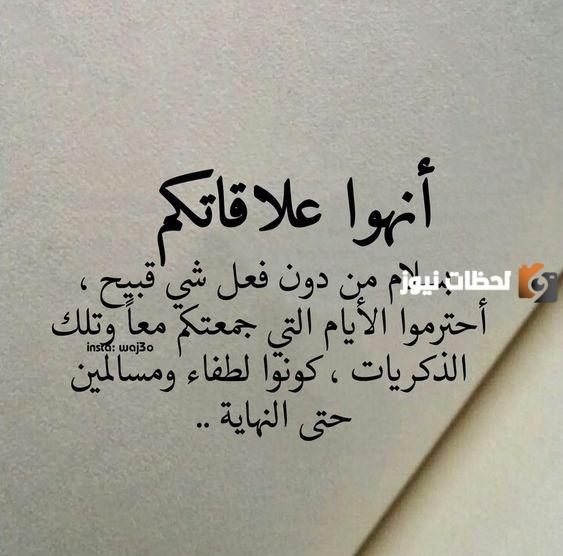 أنهوا علاقاتكم
بسلام من دون فعل شي قبيح ،
لحظات نيوز
أحترموا الأيام التي جمعتكم معاً وتلك
insta: waj3o
الذكريات ، كونوا لطفاء ومسالمين
حتى النهاية ..